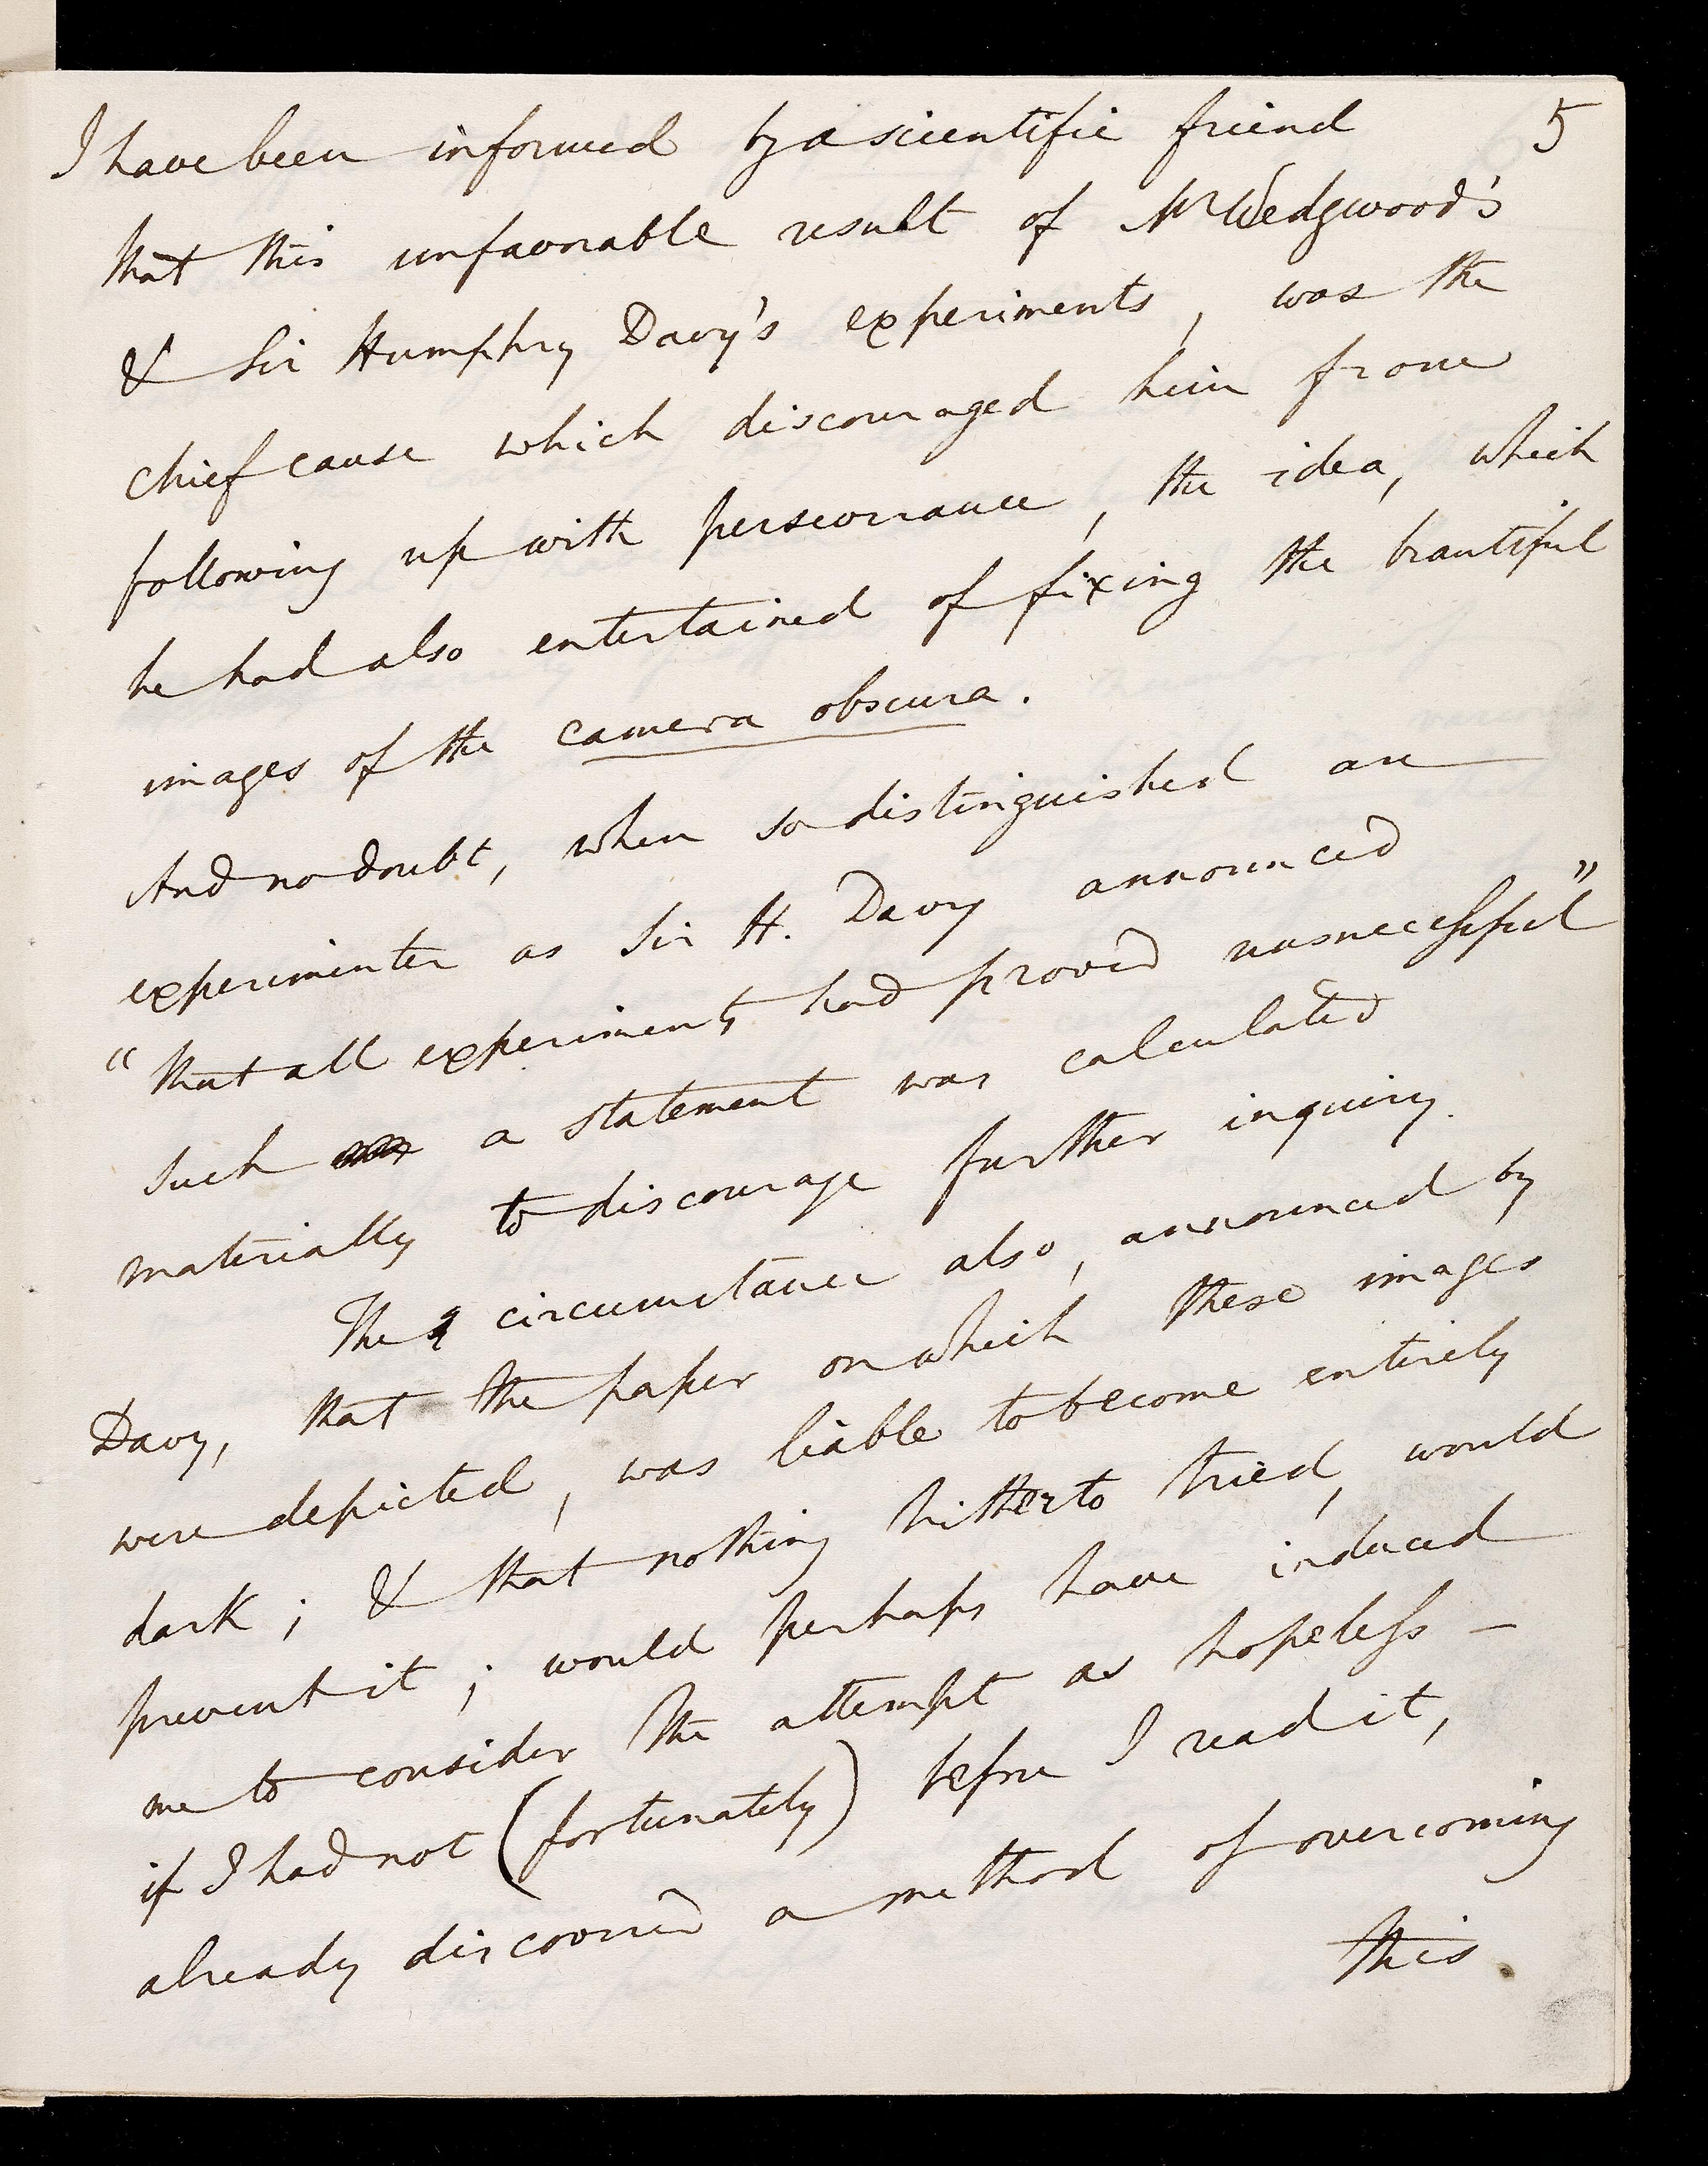 5
I have been informed by a scientific friend
that this unfavorable result of Mr Wedgwood's
& Sir Humphry Davy's experiments, was the
chief cause which discouraged him from
following up with perseverance, the idea, which
he had also entertained of fixing the beautiful
images of the camera obscura.
And no doubt, when so distinguished an
experimenter as Sir H. Davy announced
"that all experiments had proved unsuccessful"
such a statement was calculated
materially to discourage further inquiry.
The circumstance also, announced by
Davy, that the paper on which these images
were depicted, was liable to become entirely
dark; & that nothing hitherto tried, would
prevent it; would perhaps have induced
me to consider the attempt as hopeless —
if I had not (fortunately) before I read it,
already discovered a method of overcoming
this